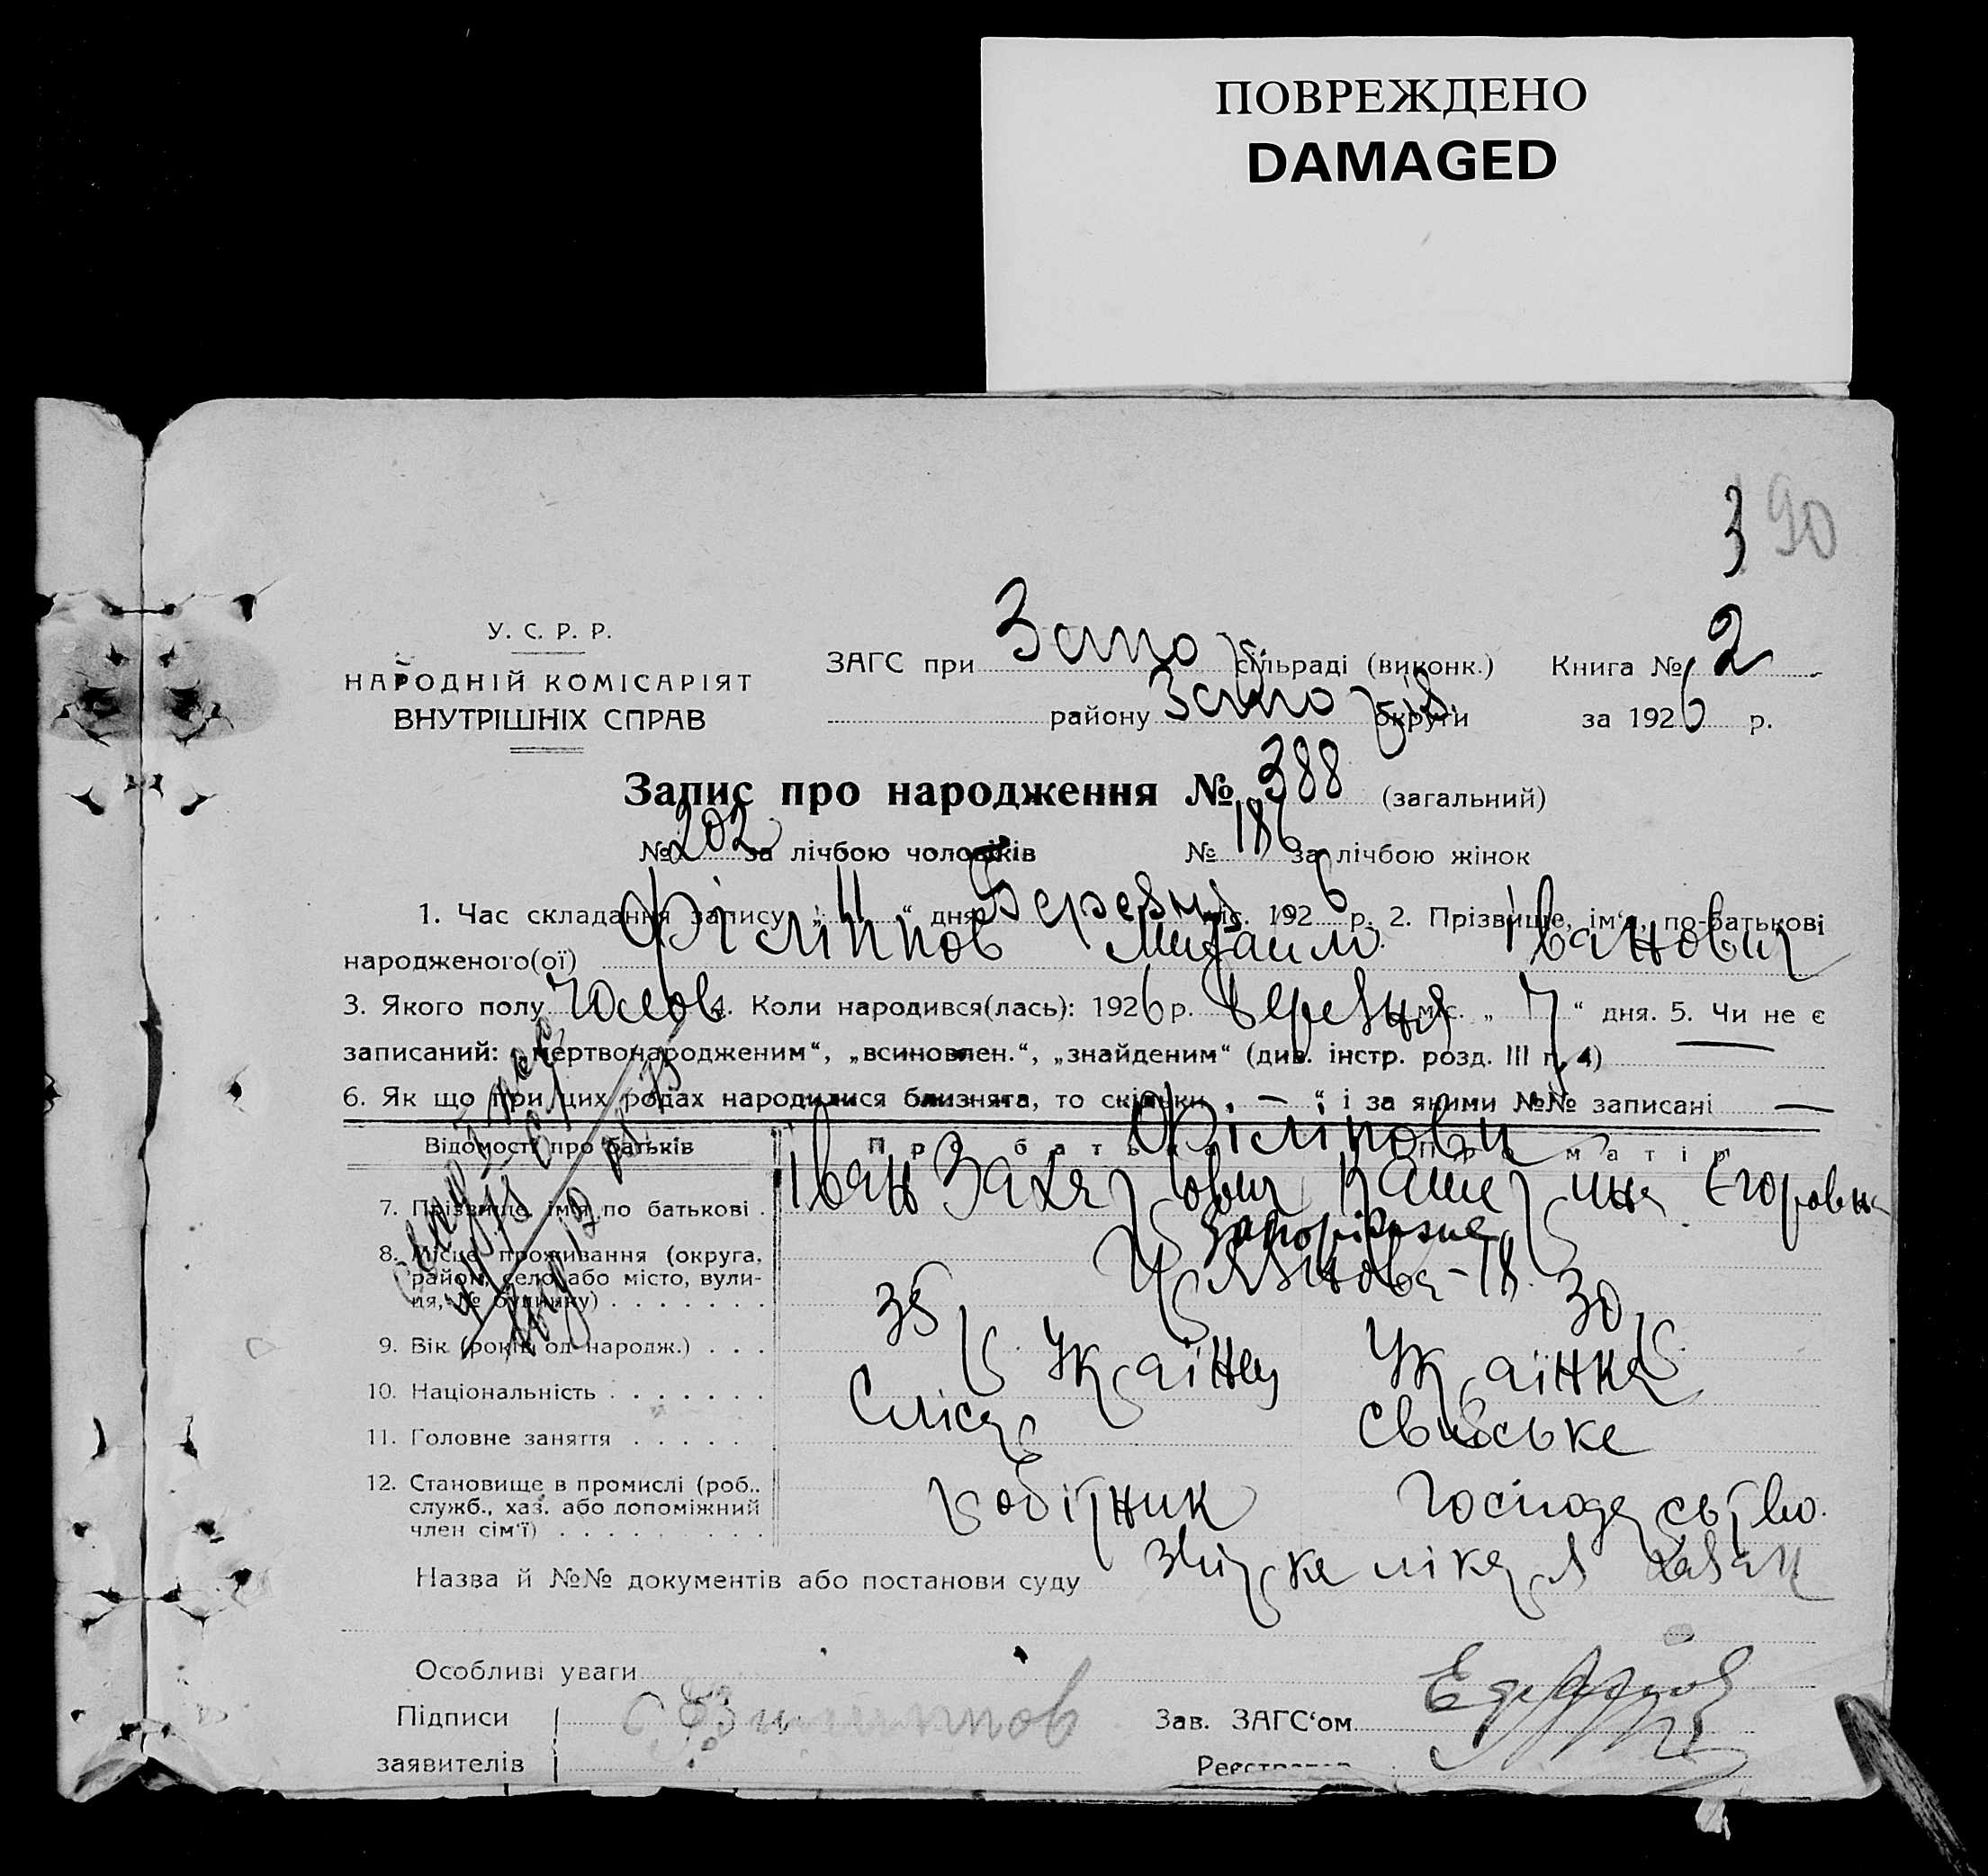 ПОВРЕЖДЕНО
DAMAGED
3 90
У. С. Р. Р.
НАРОДНІЙ КОМІСАРІЯТ
ВНУТРІШНІХ СПРАВ
ЗАГС при Запор. сільраді (виконк.) Книга № 2
району Запоріз. округи за 1926 р.
Запис про народження № 388 (загальний)
№ 202 за лічбою чоловіків № 186 за лічбою жінок
1. Час складання запису „11“ дня Березня міс. 1926 р. 2. Прізвище, ім‘я, по-батькові
народженого(ої) Філіппов Михаил Іванович
3. Якого полу Чолов 4. Коли народився(лась): 1926 р. березня міс. „7“ дня. 5. Чи не є
записаний: „мертвонародженим“, „всиновлен.“, „знайденим“ (див. інстр. розд. III п. 4)
6. Як що при цих родах народилися близнята, то скільки „—“ і за якими №№ записані —
Відомості про батьків Про батька Про матір
Філіпови
7. Прізвище, ім‘я, по батькові . Іван Захарович Катерина Єгоровна
8. Місце проживання (округа,
район, село або місто, вули-
ця, № будинку) . . . . . . . Запоріжжя
18
9. Вік (років од народж.) . . . 35 р. 30 р.
10. Національність . . . . . . . Українец Українка
11. Головне заняття . . . . . Слюсар свійське
12. Становище в промислі (роб..
служб., хаз. або допоміжний
член сім‘ї) . . . . . . . . . робітник господарство.
Назва й №№ документів або постанови суду лікаря
Особливі уваги
Підписи
заявителів Филиппов Зав. ЗАГС‘ом
Реєстратор